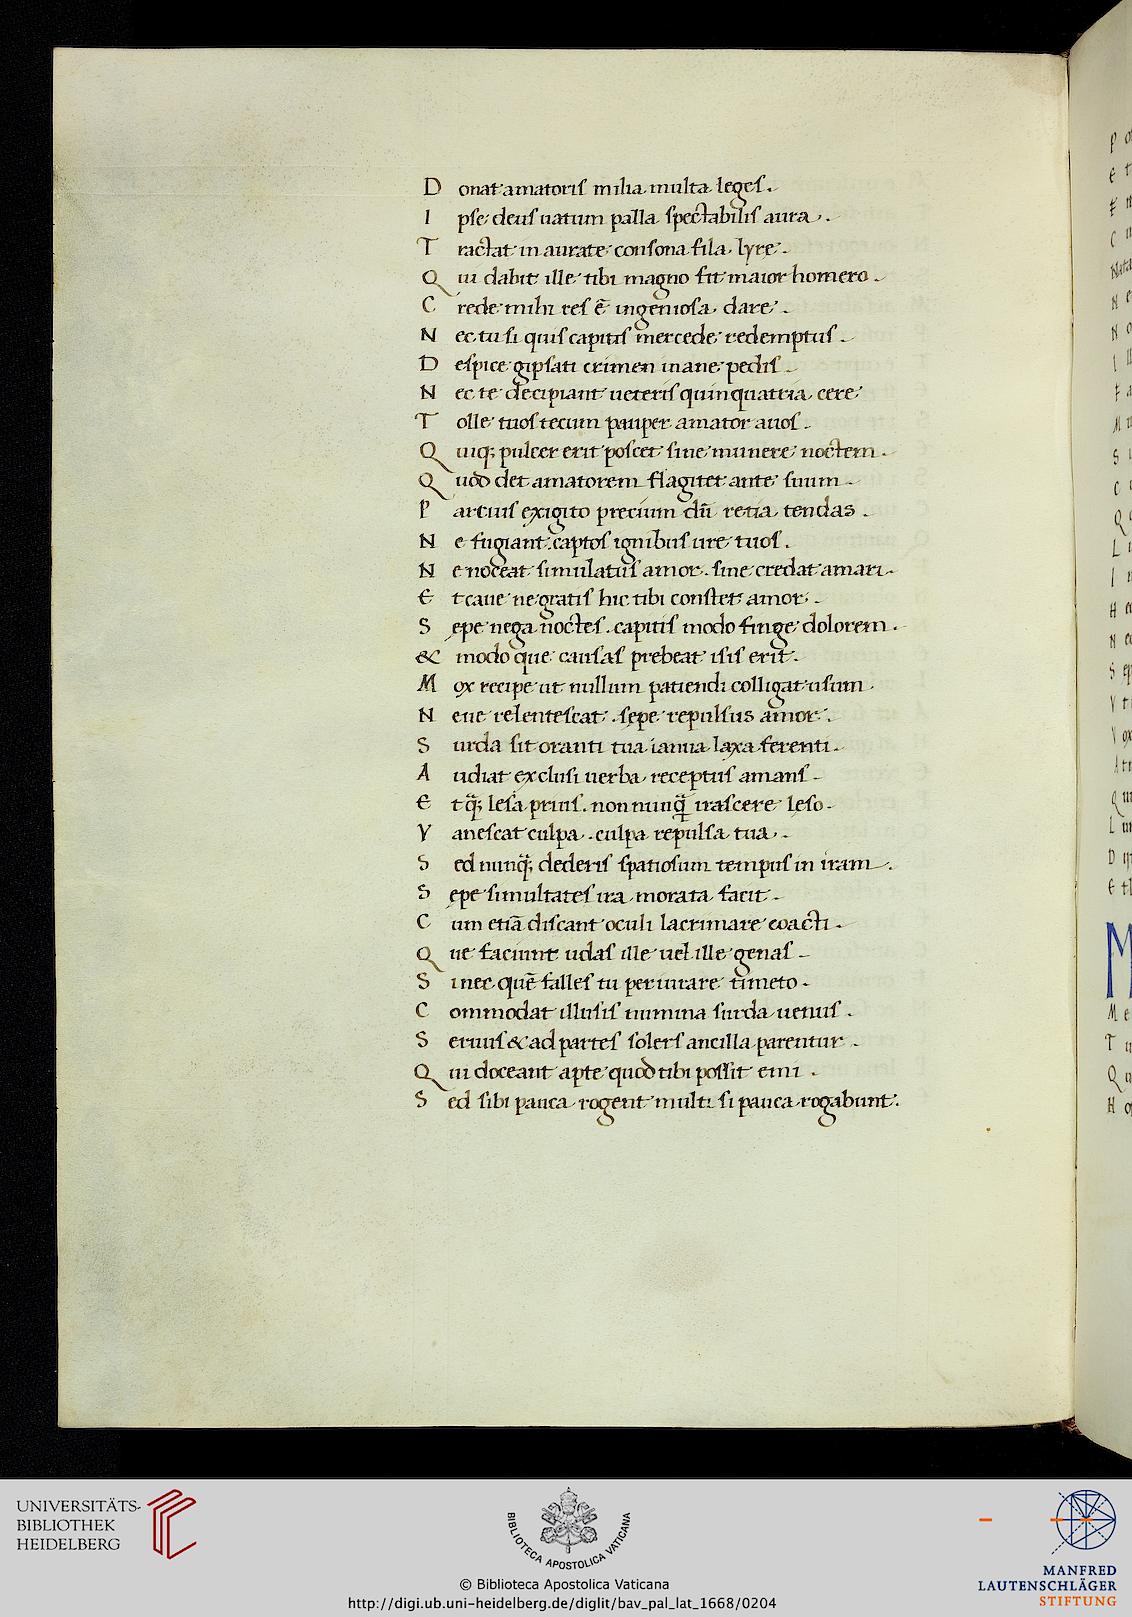 D onat amatoris milia multa leges.
I pse deus uatum palla spectabilis aura.
T ractat in aurate consona fila lyre.
Q ui dabit ille tibi magno sit maior homero.
C rede mihi res ē ingeniosa dare.
N ec tu si quis capitis mercede redemptus.
D espice gipsati crimen inane pedis.
N ec te decipiant ueteris quinquatria cere
T olle tuos tecum pauper amator auos.
Q uiq; pulcer erit poscet sine munere noctem.
Q uod det amatorem flagitet ante suum.
P arcius exigito precium dū retia tendas.
N e fugiant. captos ignibus ure tuos.
N e noceat simulatus amor. sine credat amari.
E t caue ne gratis hic tibi constet amor.
S epe nega noctes. capitis modo finge dolorem.
& modo que causas prebeat isis erit.
M ox recipe ut nullum patiendi colligat usum.
N eue relentescat. sepe repulsus amor.
S urda sit oranti tua ianua laxa ferenti.
A udiat exclusi uerba receptus amans.
E t q̄; lesa prius. non nunq̄ irascere leso.
V anescat culpa. culpa repulsa tua.
S ed nunq̄; dederis spatiosum tempus in iram.
S epe simultates ira morata facit.
C um etiā discant oculi lacrimare coacti.
Q ue faciunt udas ille uel ille genas.
S i nec quē falles tu periurare timeto.
C ommodat illusis numina surda uenus.
S eruus & ad partes solers ancilla parentur.
Q ui doceant apte quod tibi possit emi.
S ed sibi pauca rogent multi si pauca rogabunt.
UNIVERSITÄTS-
BIBLIOTHEK
HEIDELBERG
BIBLIOTECA APOSTOLICA VATICANA
© Biblioteca Apostolica Vaticana
http://digi.ub.uni-heidelberg.de/diglit/bav_pal_lat_1668/0204
MANFRED
LAUTENSCHLÄGER
STIFTUNG